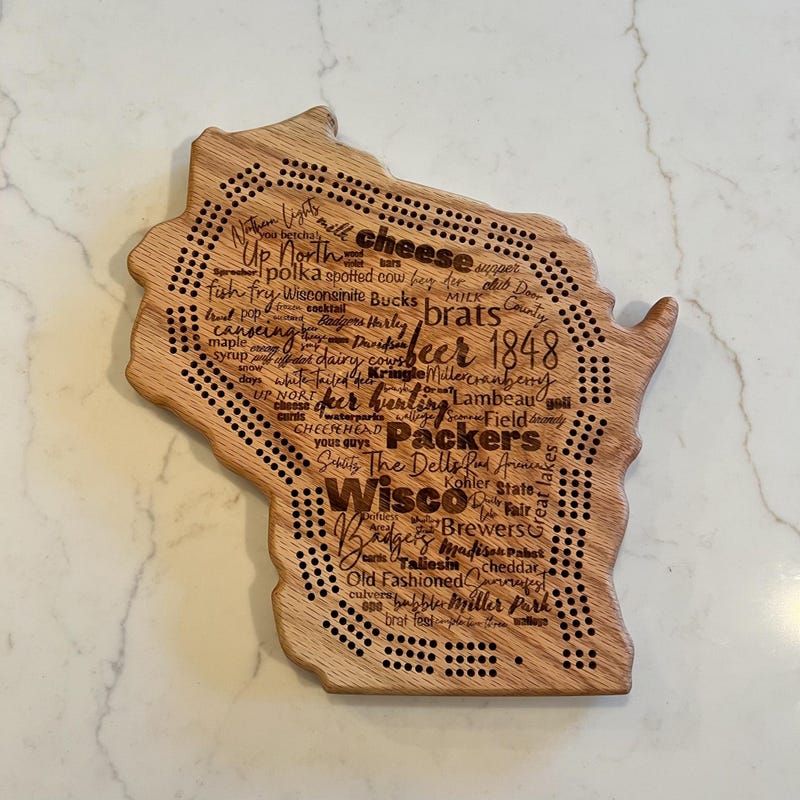 Northern Lights milk
you betcha! cheese
Up North wood violet bars supper club
Sprecher polka spotted cow hey der Door County
fish fry Wisconsinite Bucks MILK
brawl pop frozen custard cocktail brats
canoeing Badgers Harley Davidson beer 1848
maple syrup cream puff uff-dah dairy cows
snow days white-tailed deer Kringle Miller cranberry
UP NORT deer hunting Lambeau Field golf
cheese curds waterparks walleye Sconnie brandy
CHEESEHEAD Packers
yous guys
Schlitz The Dells Rud America
Kohler Great lakes
Wisco State Fair
Driftless Area Brewers
Badgers Madison Pabst
cards Taliesin cheddar
Old Fashioned Summerfest
culvers bubbler Miller Park
ope
brat fest couple two three walleye